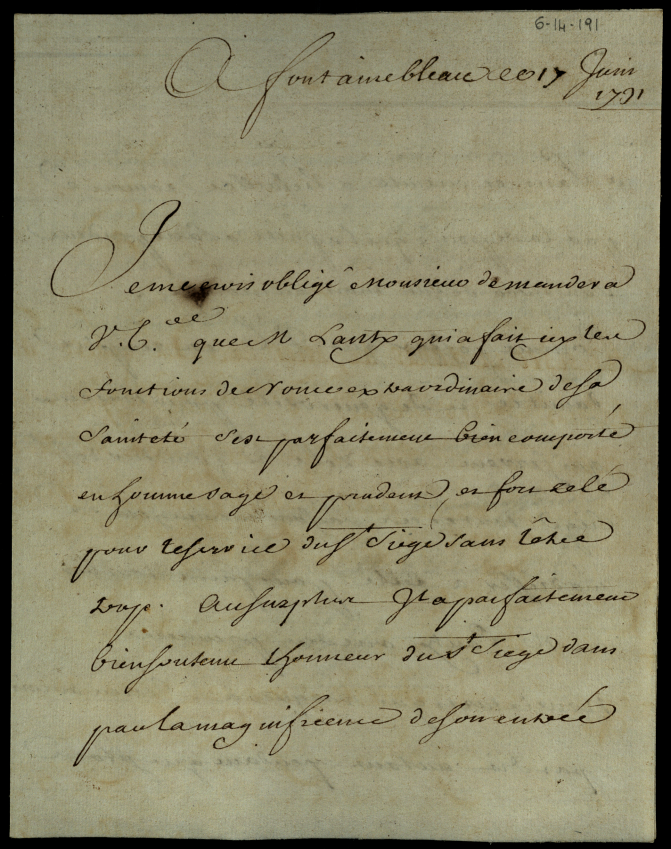 6-14-191
A fontainebleau ce 17 Juin
1731
Je me crois obligé Monsieur de mander a
V. E.ce que M Lanty qui a fait icy les
fonctions de Nonce extraordinaire de sa
Sainteté s'est parfaitement bien comporté
en homme sage et prudent, et fort zelé
pour le service du St Siege sans l'être
trop. Au surplus Il a parfaitement
bien soutenu l'honneur du St Siege dans
par la magnificence de son entrée